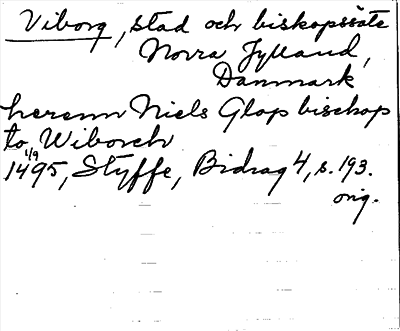 Viborg, stad och biskopssäte
Norra Jylland,
Danmark
herenn Niels Glop bischop
to Wiborch
1/9
1495, Styffe, Bidrag 4, s. 193.
orig.